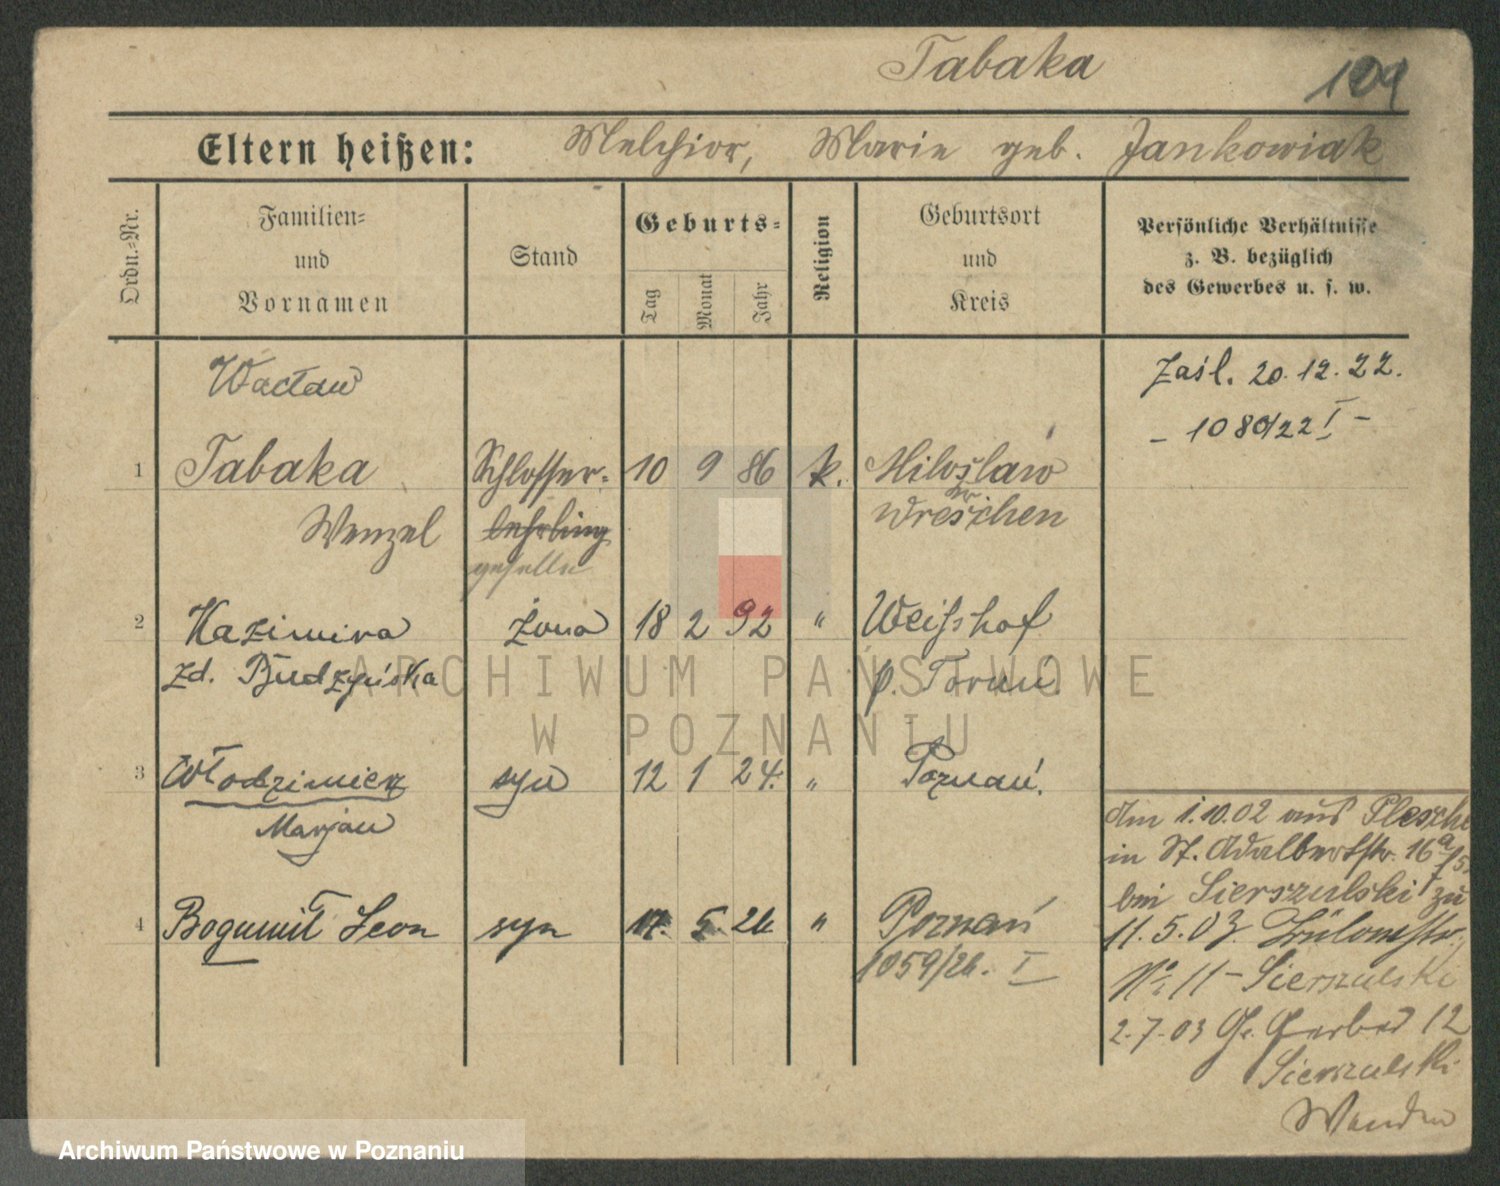 Tabaka
109
Eltern heißen: Melchior, Marie geb. Jankowiak
Ordn.-Nr.
Familien-
und
Vornamen
Stand
Geburts-
Tag
Monat
Jahr
Religion
Geburtsort
und
Kreis
Persönliche Verhältnisse
z. B. bezüglich
des Gewerbes u. s. w.
Wacław
Zaśl. 20.12.22.
- 1080/22 I -
1 Tabaka Schlosser- 10 9 86 k. Miloslaw
Wenzel lehrling Wreschen
geselle
2 Kazimira żona 18 2 92 " Weißhof
zd. Budzyńska p. Toruń
3 Włodzimierz syn 12 1 24. " Poznań.
Marjan
4 Bogumił Leon syn 17. 5. 26 " Poznań
1059/26. I
Am 1.10.02 aus Plesche
in St. Adalbertstr. 16a
bei Sierszulski zu
11.5.03. Bülowstr.
No. 11 - Sierszulski
2.7.03 Gr. Gerber 12
Sierszulski
ARCHIWUM PAŃSTWOWE
W POZNANIU
Archiwum Państwowe w Poznaniu